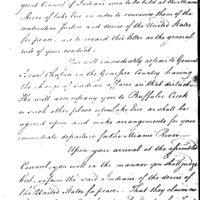 great Council of Indians was to be held at the Miami
River of Lake Erie in order to convince them of the
moderation justice and desire of the United States
for peace. are to regard this letter as the general
rule of your conduct.
You will immediately repair to General
Israel Chapin in the Genesee Country (having
the charge of Indian affairs in that district.
He will accompany you to Buffaloe Creek
or such other place upon Lake Erie as shall be
agreed upon and make arrangements for your
immediate departure for the Miami River.
Upon your arrival at the aforesaid
Council, you will in the manner you shall judge
best, inform the said Indians of the desire of
the United States for peace. That they